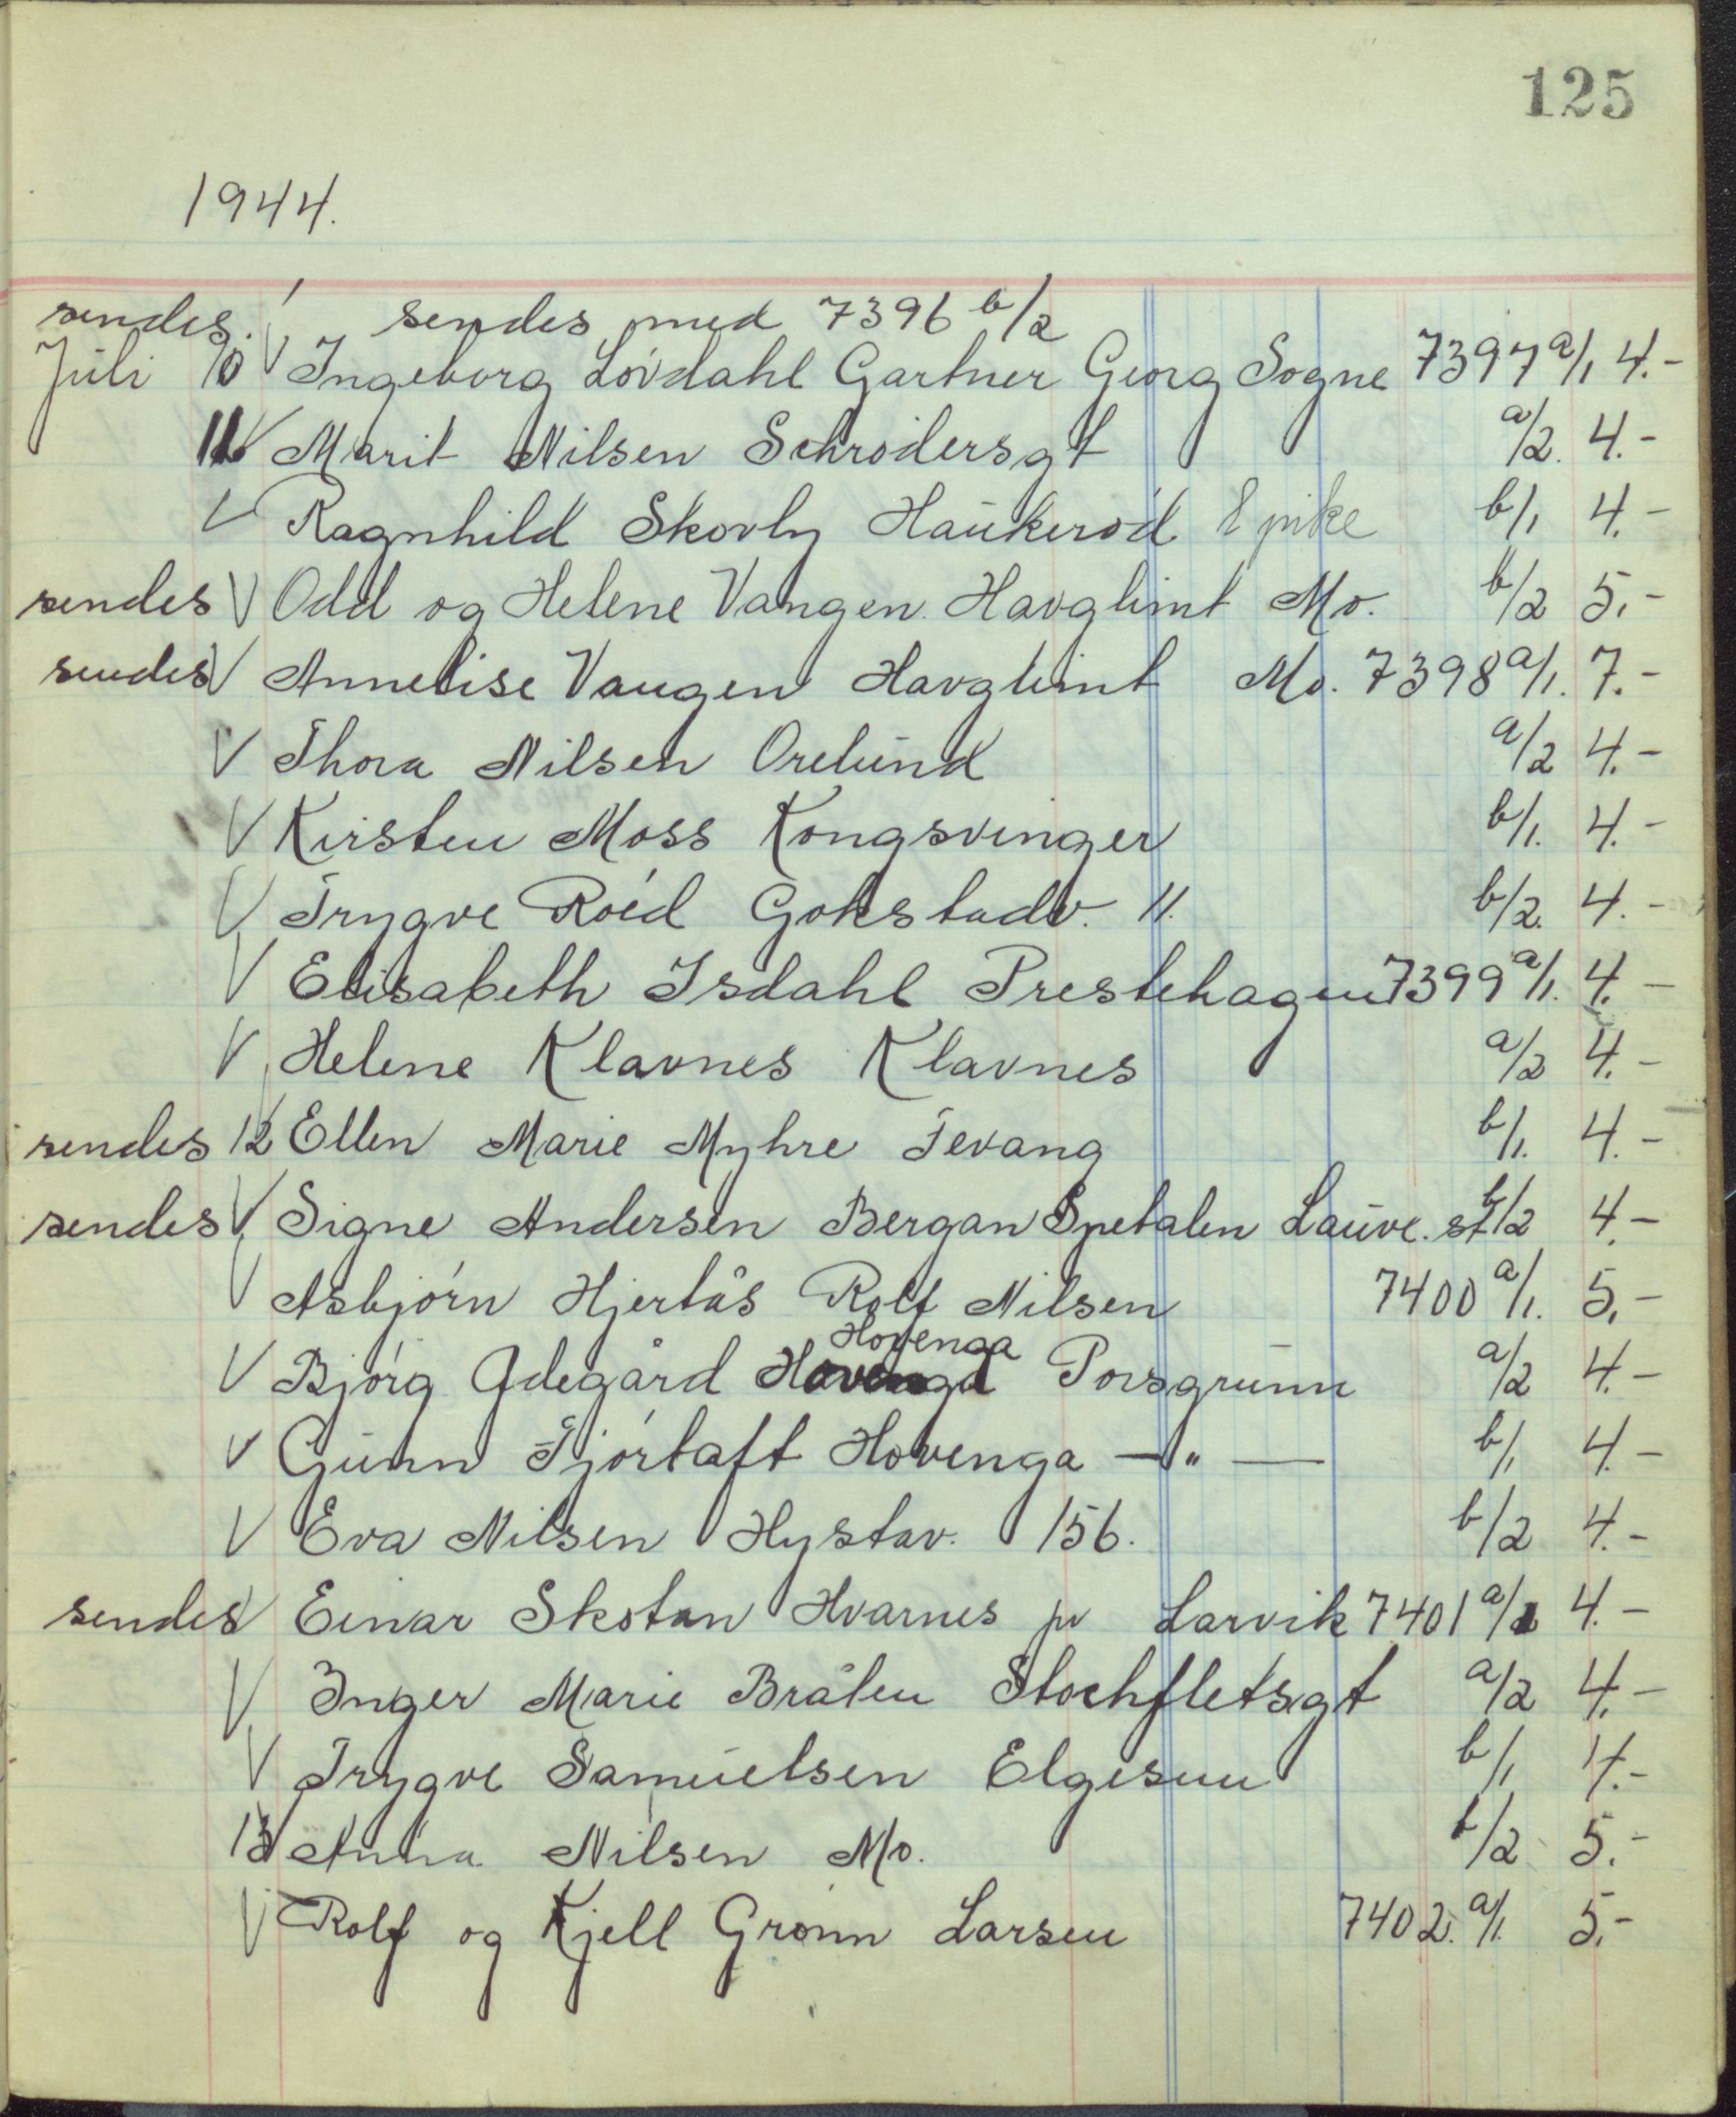 125
1944.
sendes. sendes med 7396 b/2
Juli 10 V Ingeborg Lövdahl Gartner Georg Sogne 7397 a/1 4.-
11 V Marit Nilsen Schrödersgt a/2. 4.-
V Ragnhild Skovly Haukeröd b/1 4.-
sendes V Odd og Helene Vangen. Havglimt Mo. b/2 5.-
sendes V Annelise Vangen Havglimt Mo. 7398 a/1. 7.-
V Thora Nilsen Orelund a/2 4.-
V Kirsten Moss Kongsvinger b/1. 4.-
V Trygve Röed Gokstadv. 11. b/2. 4.-
V Elisabeth Isdahl Prestehagen 7399 a/1. 4.-
V Helene Klavnes Klavnes a/2 4.-
sendes 12 Ellen Marie Myhre Tevang b/1. 4.-
sendes V Signe Andersen Bergan Spetalen Lauve. st b/2 4.-
V Asbjörn Hjertås Rolf Nilsen 7400 a/1. 5.-
Hovenga
V Bjórg Ödegård Hovenga Porsgrunn a/2 4.-
V Gunn Tjörtaft Hovenga —"— b/1 4.-
V Eva Nilsen Hystav. 156. b/2 4.-
sendes V Einar Skotan Hvarnes pr Larvik 7401 a/1 4.-
V Inger Marie Bråten Stochfletsgt a/2 4.-
V Trygve Samuelsen Elgesem b/1 4.-
13 Anna Nilsen Mo. b/2 5.-
V Rolf og Kjell Grönn Larsen 7402. a/1. 5.-